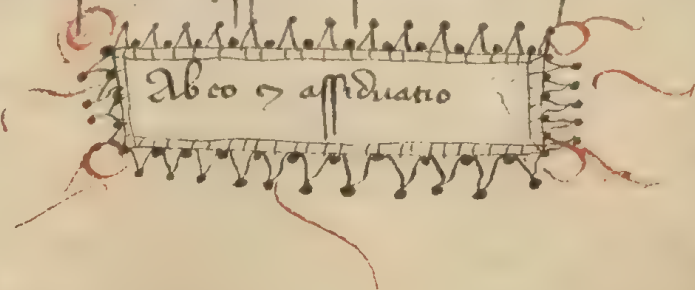 Ab eo assiduatio